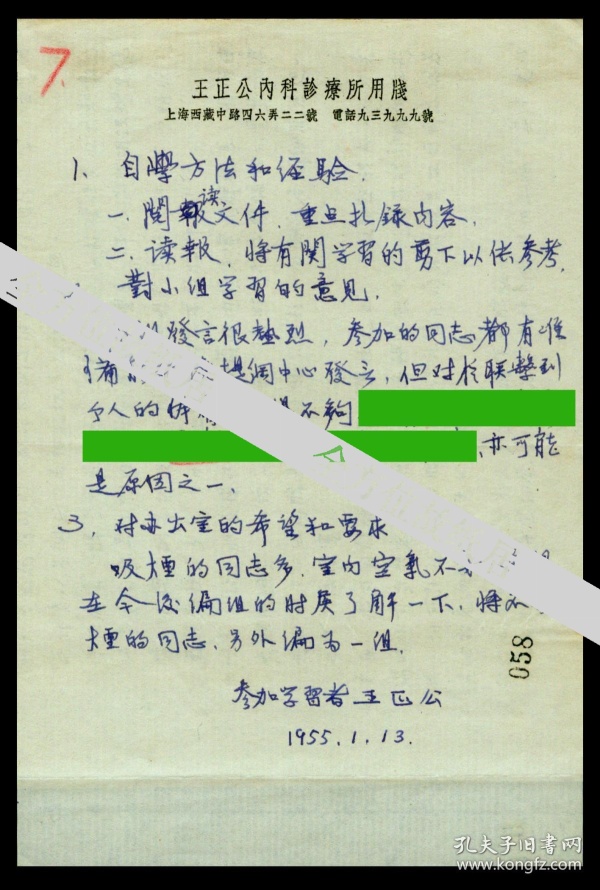 7.
王正公內科診療所用牋
上海西藏中路四六弄二二號 電話九三九九九號
1、自學方法和经驗.
一. 閱報读文件、重点扎録内容.
二. 读報、将有関学習的剪下以供参考.
對小组学習的意見.
發言很热烈, 参加的同志都有准
提綱中心發言, 但对於联繫到
个人的 不夠
、亦可能
是原因之一、
3、对办公室的希望和要求
吸煙的同志多、室内空氣不
在今後编组的时候了解一下、将不
煙的同志、另外编为一组.
参加学習者王正公
1955.1.13.
058
孔夫子旧书网
www.kongfz.com